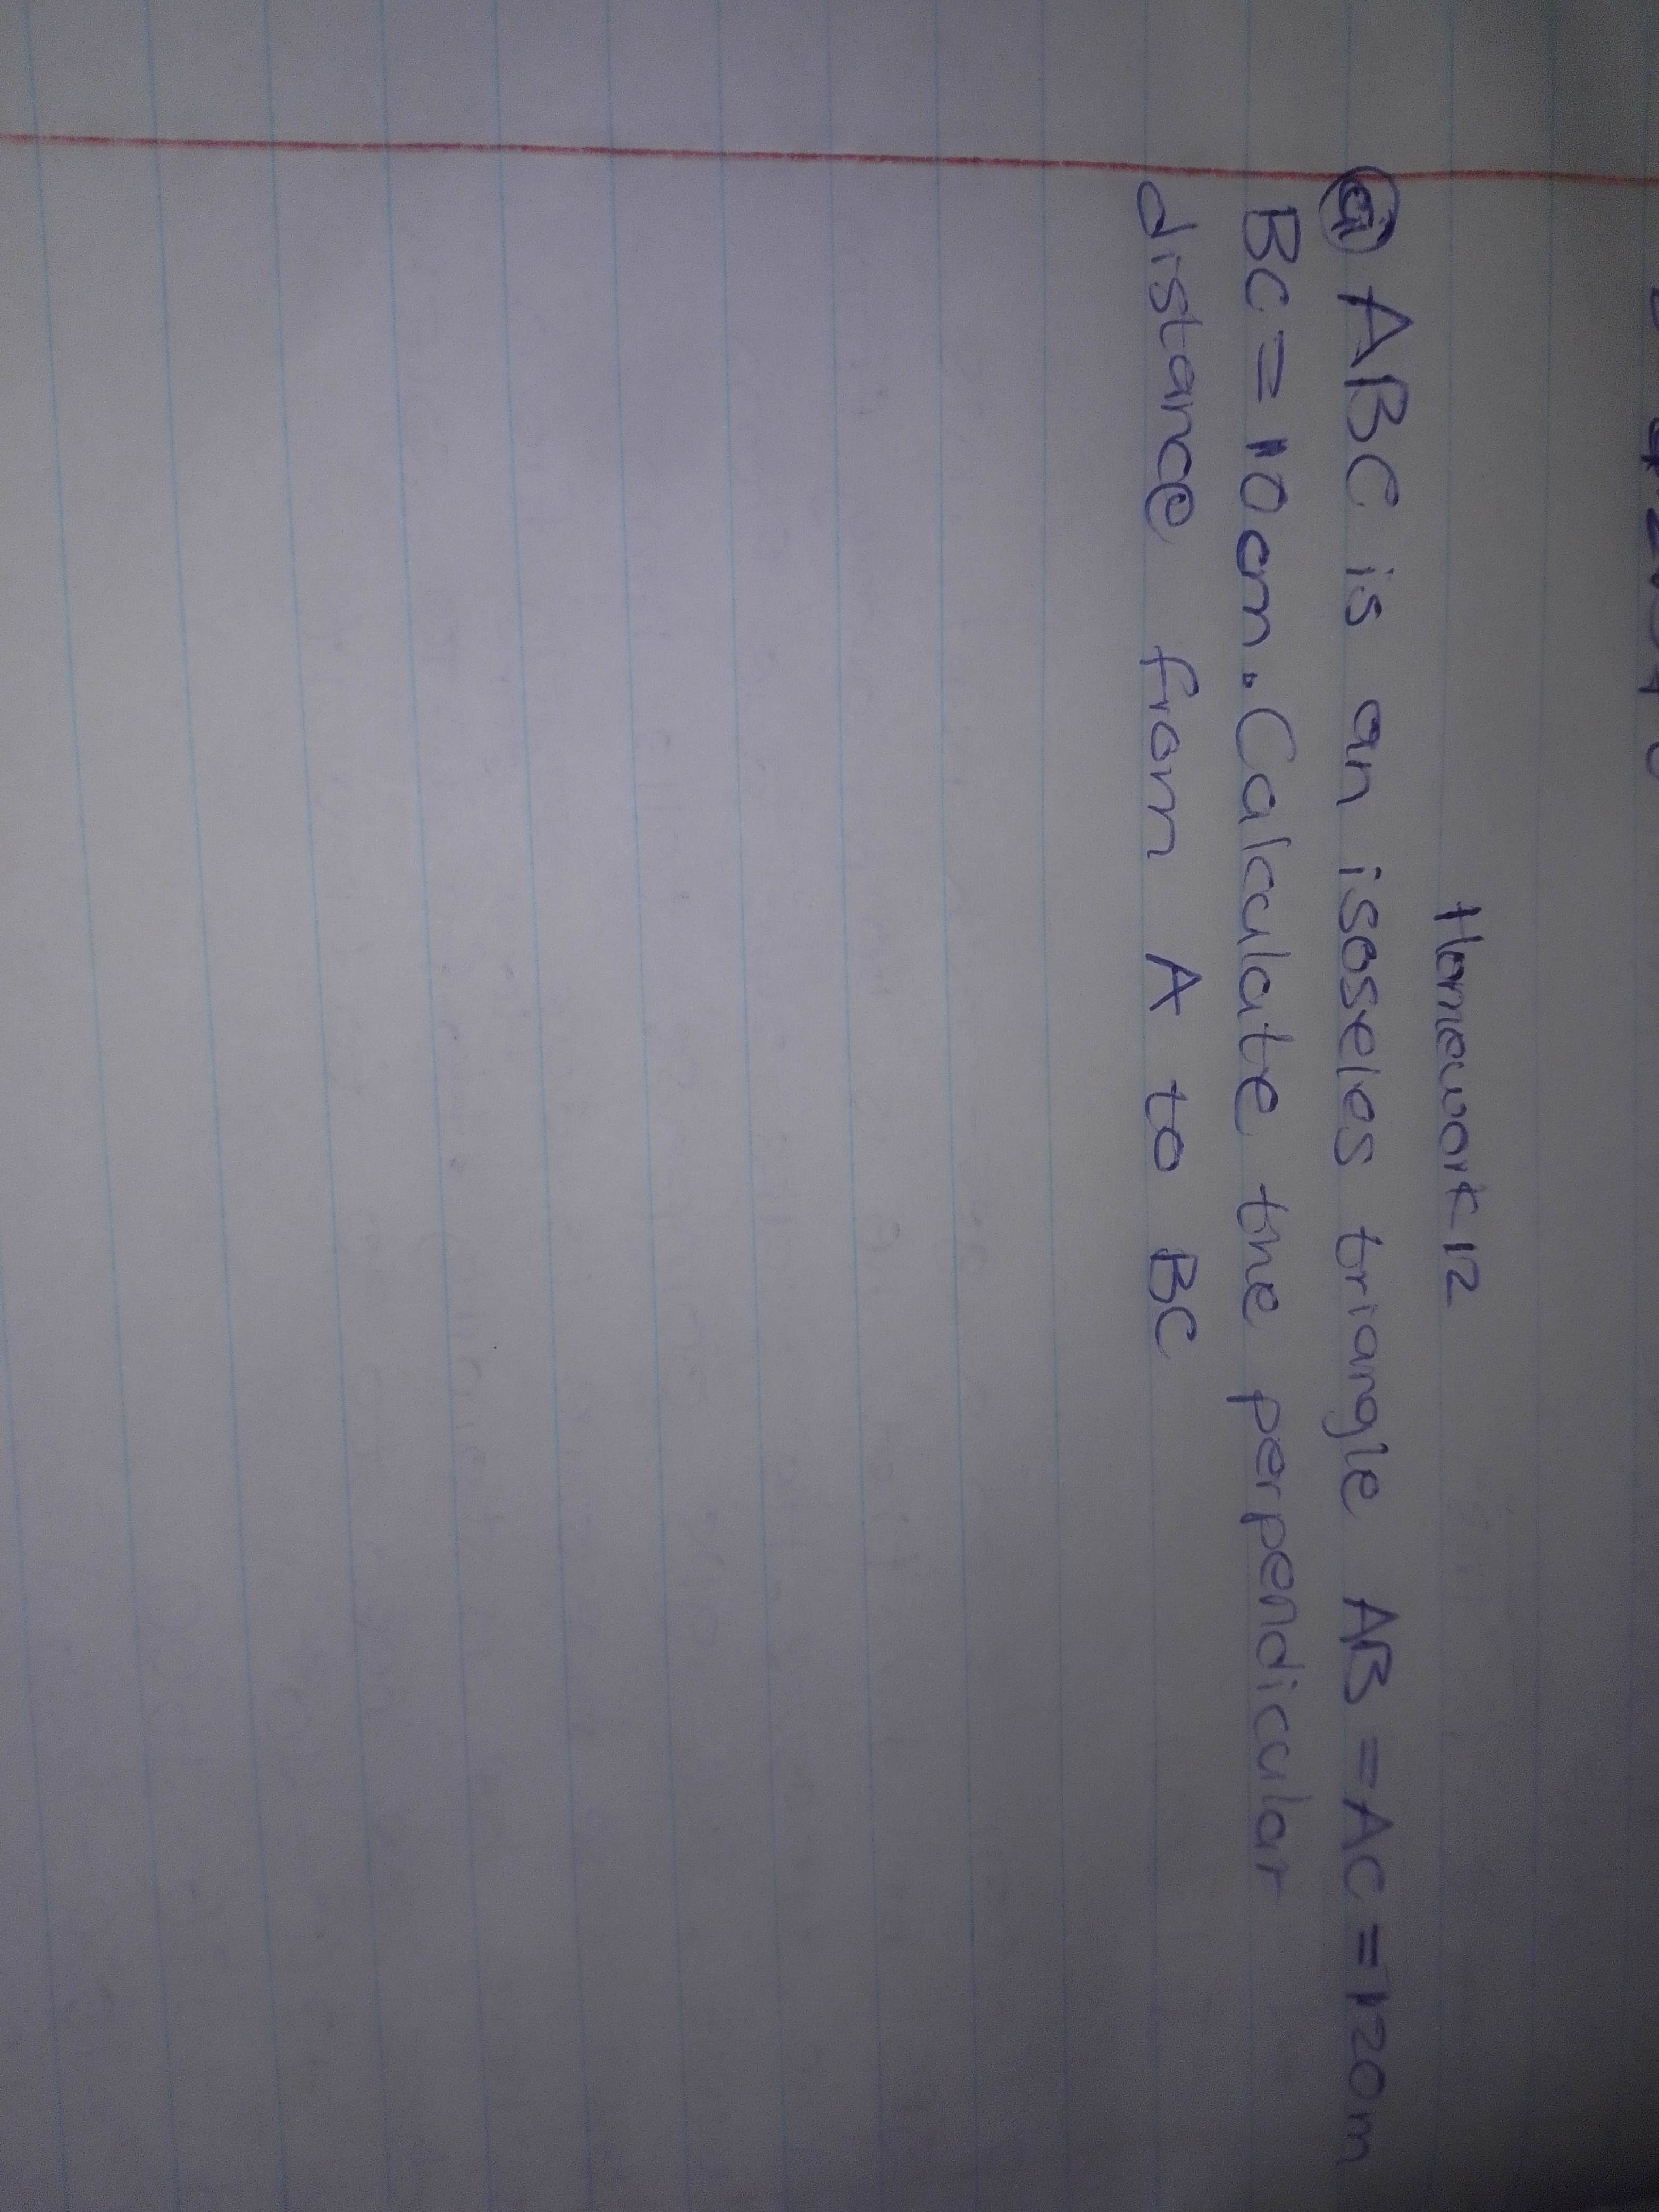 Homework 12
(a) ABC is an isosseles triangle AB = AC = 12cm
BC = 10cm. Calculate the perpendicular
distance from A to BC